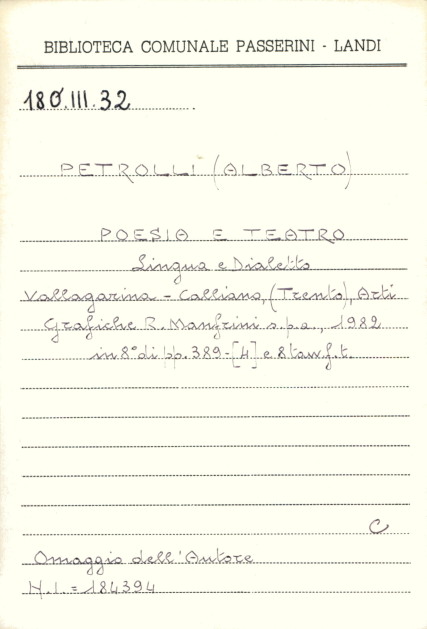 BIBLIOTECA COMUNALE PASSERINI - LANDI
180.III.32
PETROLLI (ALBERTO)
POESIA E TEATRO
Lingua e Dialetto
Vallagarina - Calliano, (Trento), Arti
Grafiche R. Manfrini s.p.a., 1982
in 8° di pp. 389-[4] e 8 tav.f.t.
C
Omaggio dell'Autore
N.I. = 184394